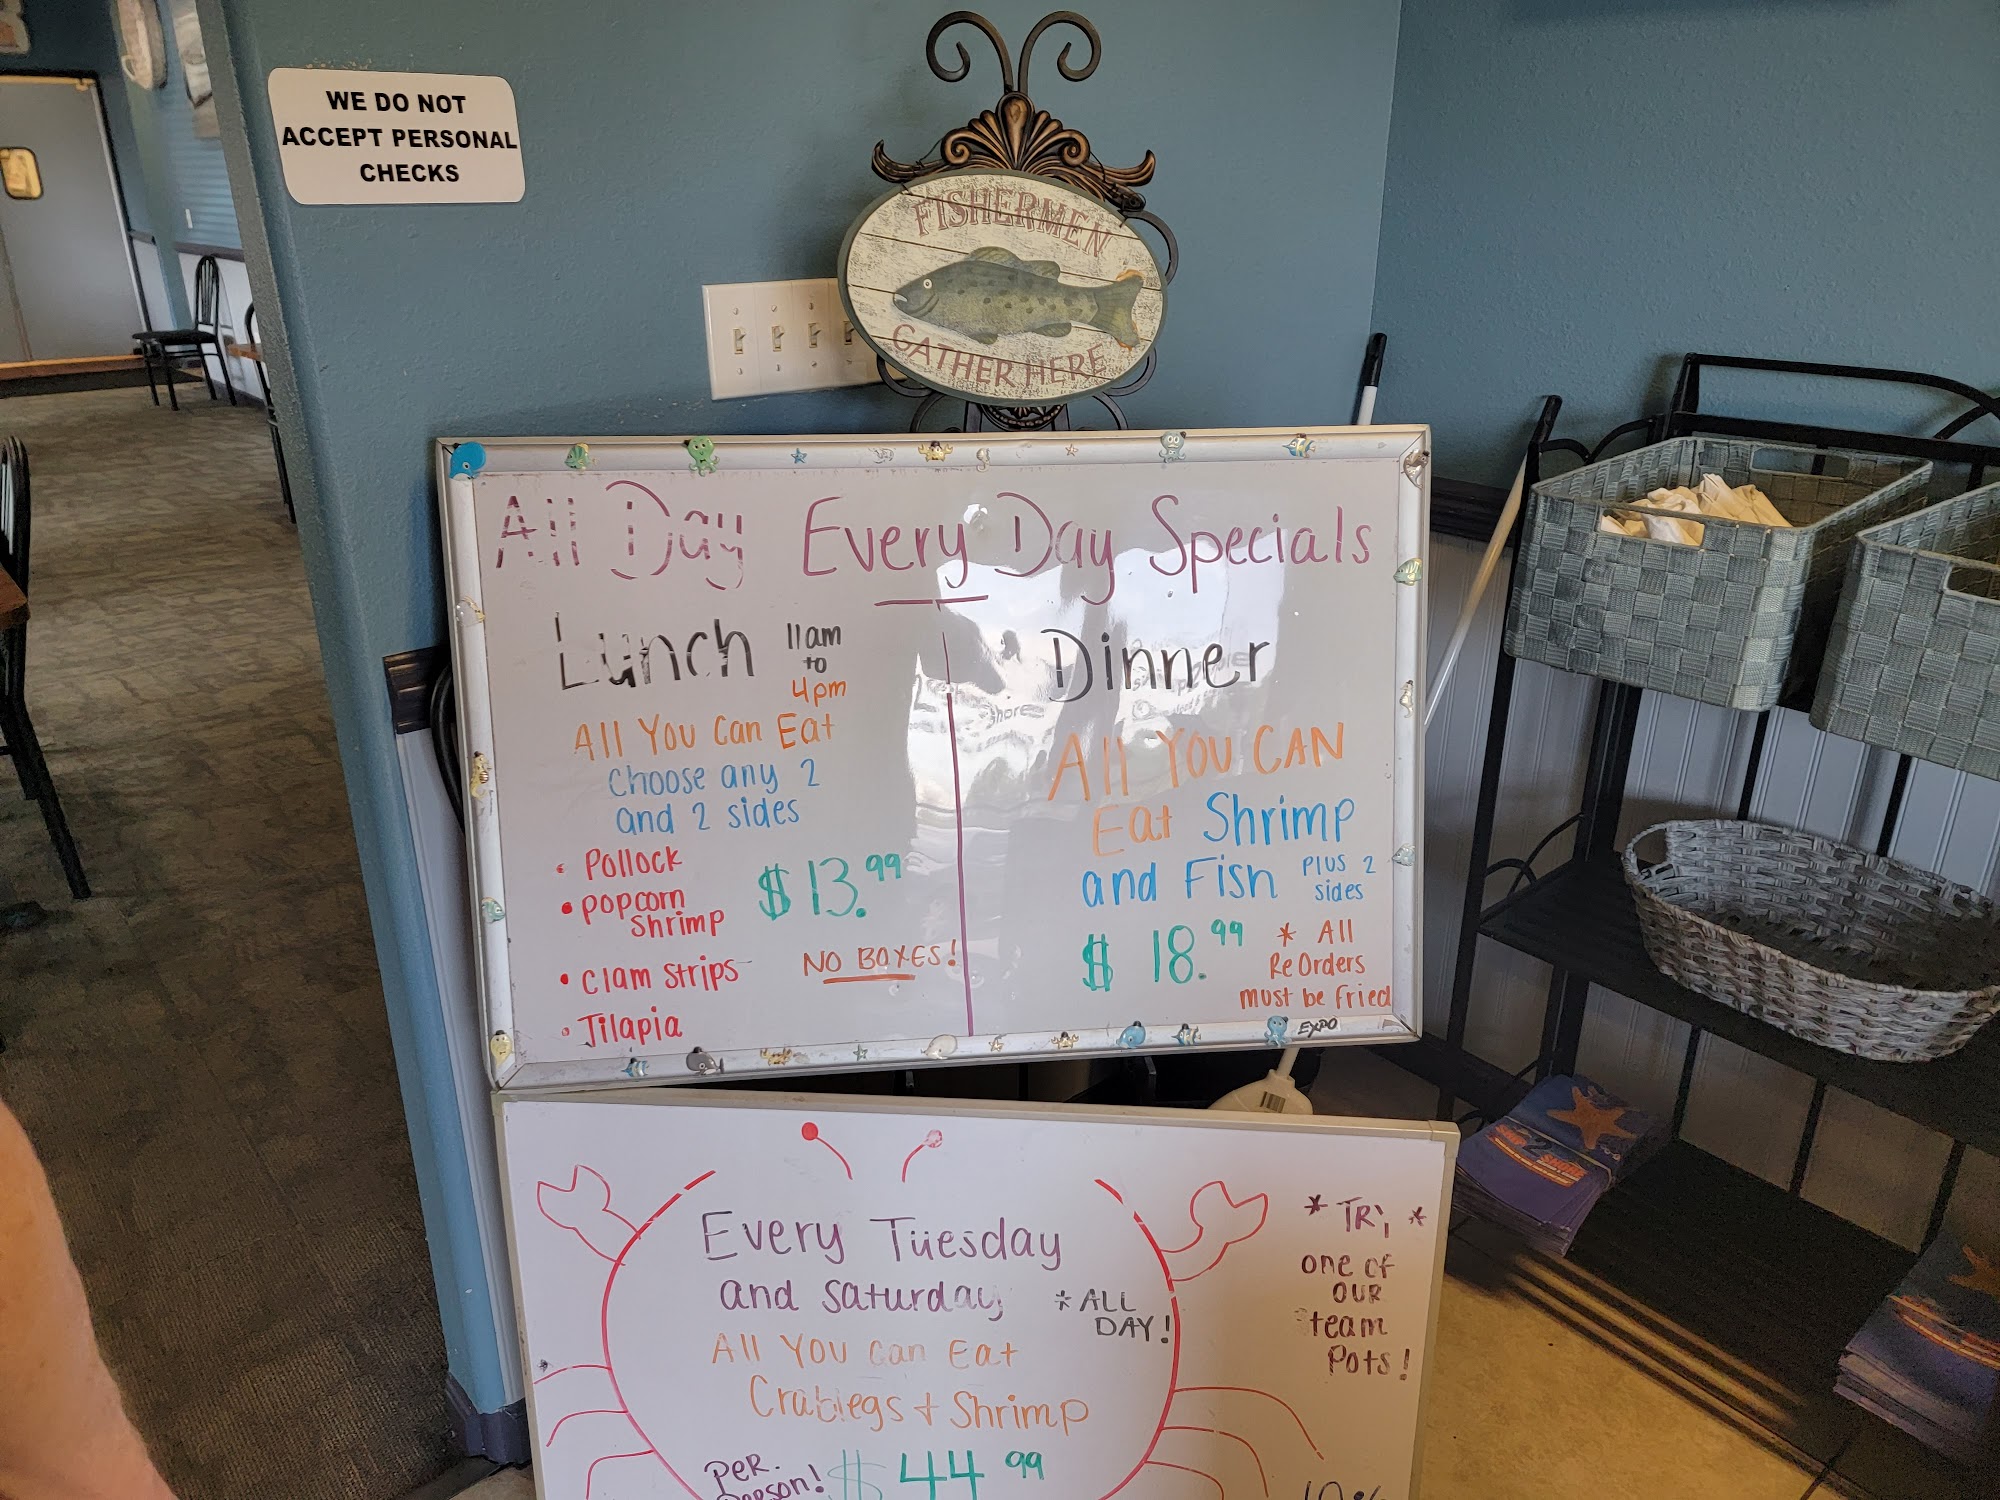 WE DO NOT
ACCEPT PERSONAL
CHECKS
FISHERMEN
GATHER HERE
All Day Every Day Specials
Lunch 11am
to
4pm
All You Can Eat
Choose any 2
and 2 sides
• Pollock
• popcorn
Shrimp
• Clam Strips
• Tilapia
$13.99
NO BOXES!
Dinner
All YOU CAN
Eat Shrimp
and Fish PLUS 2
sides
$ 18.99
* All
ReOrders
must be Fried
EXPO
Every Tuesday
and Saturday
* ALL
DAY!
All You can Eat
Crablegs + Shrimp
Per
Person!
$44.99
* TRY *
one of
OUR
team
Pots!